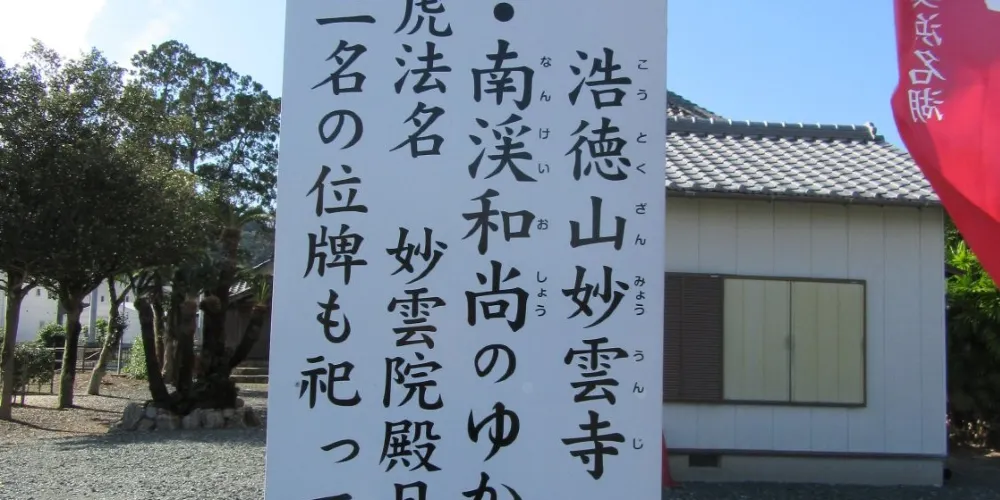 浩徳山妙雲寺
こうとくざんみょううんじ
・南渓和尚のゆか
なんけいおしょう
虎法名 妙雲院殿月
一名の位牌も祀っ
浜名湖